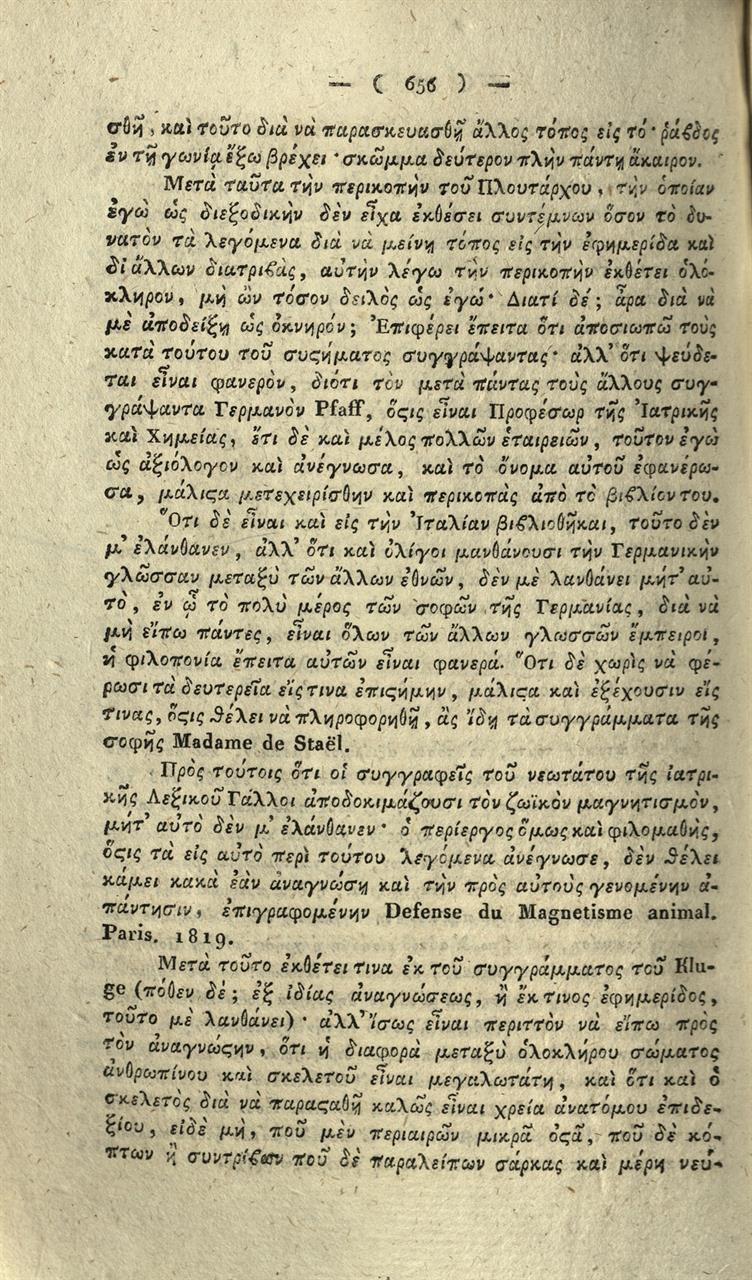 — ( 656 ) —
σθῇ, καὶ τοῦτο διὰ νὰ παρασκευασθῇ ἄλλος τόπος εἰς τό· ῥάϐδος
ἐν τῇ γωνίᾳ ἔξω βρέχει· σκῶμμα δεύτερον πλὴν πάντη ἄκαιρον.
Μετὰ ταῦτα τὴν περικοπὴν τοῦ Πλουτάρχου, τὴν ὁποίαν
ἐγὼ ὡς διεξοδικὴν δὲν εἶχα ἐκθέσει συντέμνων ὅσον τὸ δυ-
νατὸν τὰ λεγόμενα διὰ νὰ μείνῃ τόπος εἰς τὴν ἐφημερίδα καὶ
δι' ἄλλων διατριϐάς, αὐτὴν λέγω τὴν περικοπὴν ἐκθέτει ὁλό-
κληρον, μὴ ὢν τόσον δειλὸς ὡς ἐγώ· Διατί δέ; ἆρα διὰ νὰ
μὲ ἀποδείξῃ ὡς ὀκνηρόν; Ἐπιφέρει ἔπειτα ὅτι ἀποσιωπῶ τοὺς
κατὰ τούτου τοῦ συϛήματος συγγράψαντας· ἀλλ' ὅτι ψεύδε-
ται εἶναι φανερὸν, διότι τὸν μετὰ πάντας τοὺς ἄλλους συγ-
γράψαντα Γερμανὸν Pfaff, ὅϛις εἶναι Προφέσωρ τῆς Ἰατρικῆς
καὶ Χημείας, ἔτι δὲ καὶ μέλος πολλῶν ἑταιρειῶν, τοῦτον ἐγὼ
ὡς ἀξιόλογον καὶ ἀνέγνωσα, καὶ τὸ ὄνομα αὐτοῦ ἐφανέρω-
σα, μάλιϛα μετεχειρίσθην καὶ περικοπὰς ἀπὸ τὸ βιϐλίον του.
Ὅτι δὲ εἶναι καὶ εἰς τὴν Ἰταλίαν βιϐλιοθῆκαι, τοῦτο δὲν
μ' ἐλάνθανεν, ἀλλ' ὅτι καὶ ὀλίγοι μανθάνουσι τὴν Γερμανικὴν
γλῶσσαν μεταξὺ τῶν ἄλλων ἐθνῶν, δὲν μὲ λανθάνει μήτ' αὐ-
τὸ, ἐν ᾧ τὸ πολὺ μέρος τῶν σοφῶν τῆς Γερμανίας, διὰ νὰ
μὴ εἴπω πάντες, εἶναι ὅλων τῶν ἄλλων γλωσσῶν ἔμπειροι,
ἡ φιλοπονία ἔπειτα αὐτῶν εἶναι φανερά. Ὅτι δὲ χωρὶς νὰ φέ-
ρωσι τὰ δευτερεῖα εἴς τινα ἐπιϛήμην, μάλιϛα καὶ ἐξέχουσιν εἴς
τινας, ὅϛις θέλει νὰ πληροφορηθῇ, ἂς ἴδῃ τὰ συγγράμματα τῆς
σοφῆς Madame de Staël.
Πρὸς τούτοις ὅτι οἱ συγγραφεῖς τοῦ νεωτάτου τῆς ἰατρι-
κῆς Λεξικοῦ Γάλλοι ἀποδοκιμάζουσι τὸν ζωϊκὸν μαγνητισμὸν,
μήτ' αὐτὸ δὲν μ' ἐλάνθανεν· ὁ περίεργος ὅμως καὶ φιλομαθὴς,
ὅϛις τὰ εἰς αὐτὸ περὶ τούτου λεγόμενα ἀνέγνωσε, δὲν θέλει
κάμει κακὰ ἐὰν ἀναγνώσῃ καὶ τὴν πρὸς αὐτοὺς γενομένην ἀ-
πάντησιν, ἐπιγραφομένην Defense du Magnetisme animal.
Paris. 1819.
Μετὰ τοῦτο ἐκθέτει τινα ἐκ τοῦ συγγράμματος τοῦ Klu-
ge (πόθεν δέ; ἐξ ἰδίας ἀναγνώσεως, ἢ ἔκ τινος ἐφημερίδος,
τοῦτο μὲ λανθάνει)· ἀλλ' ἴσως εἶναι περιττὸν νὰ εἴπω πρὸς
τὸν ἀναγνώϛην, ὅτι ἡ διαφορὰ μεταξὺ ὁλοκλήρου σώματος
ἀνθρωπίνου καὶ σκελετοῦ εἶναι μεγαλωτάτη, καὶ ὅτι καὶ ὁ
σκελετὸς διὰ νὰ παραϛαθῇ καλῶς εἶναι χρεία ἀνατόμου ἐπιδε-
ξίου, εἰδὲ μὴ, ποῦ μὲν περιαιρῶν μικρᾶ ὀϛᾶ, ποῦ δὲ κό-
πτων ἢ συντρίϐων ποῦ δὲ παραλείπων σάρκας καὶ μέρη νευ-